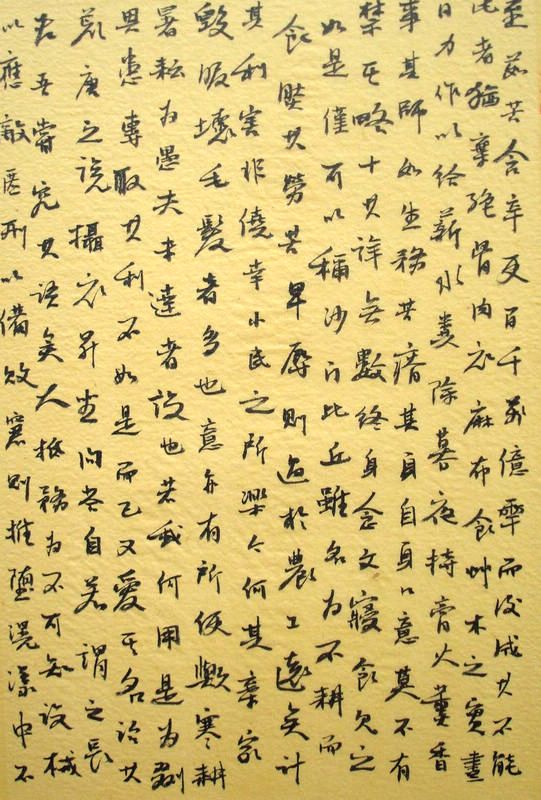 至茹苦含辛更百千萬億年而後成其不能
此者猶棄絕骨肉衣麻布食艸木之實晝
日力作以給薪水糞除暮夜持膏火薰香
事其師如生務苦瘠其身自身口意莫不有
禁其略十其詳無數終身念之寢食見之
如是僅可以稱沙门比丘雖名為不耕而
食然其勞苦卑辱則過於農工遠矣計
其利害非僥幸小民之所樂今何其棄家
毀服壞毛髮者多也意亦有所便歟寒耕
暑耘為愚夫未達者設也若我何用是為剟
其患專取其利不如是而已又愛其名治其
荒唐之說攝衣昇坐問答自若謂之長
老吾嘗究其語矣大抵務為不可知設械
以應敵匿形以備敗窘則推墮滉漾中不